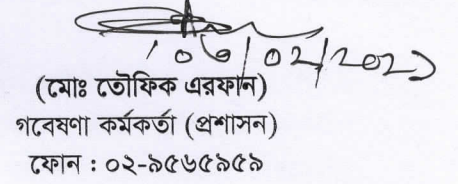 ০৩/০২/২০২১
(মোঃ তৌফিক এরফান)
গবেষণা কর্মকর্তা (প্রশাসন)
ফোন : ০২-৯৫৬৫৯৫৯